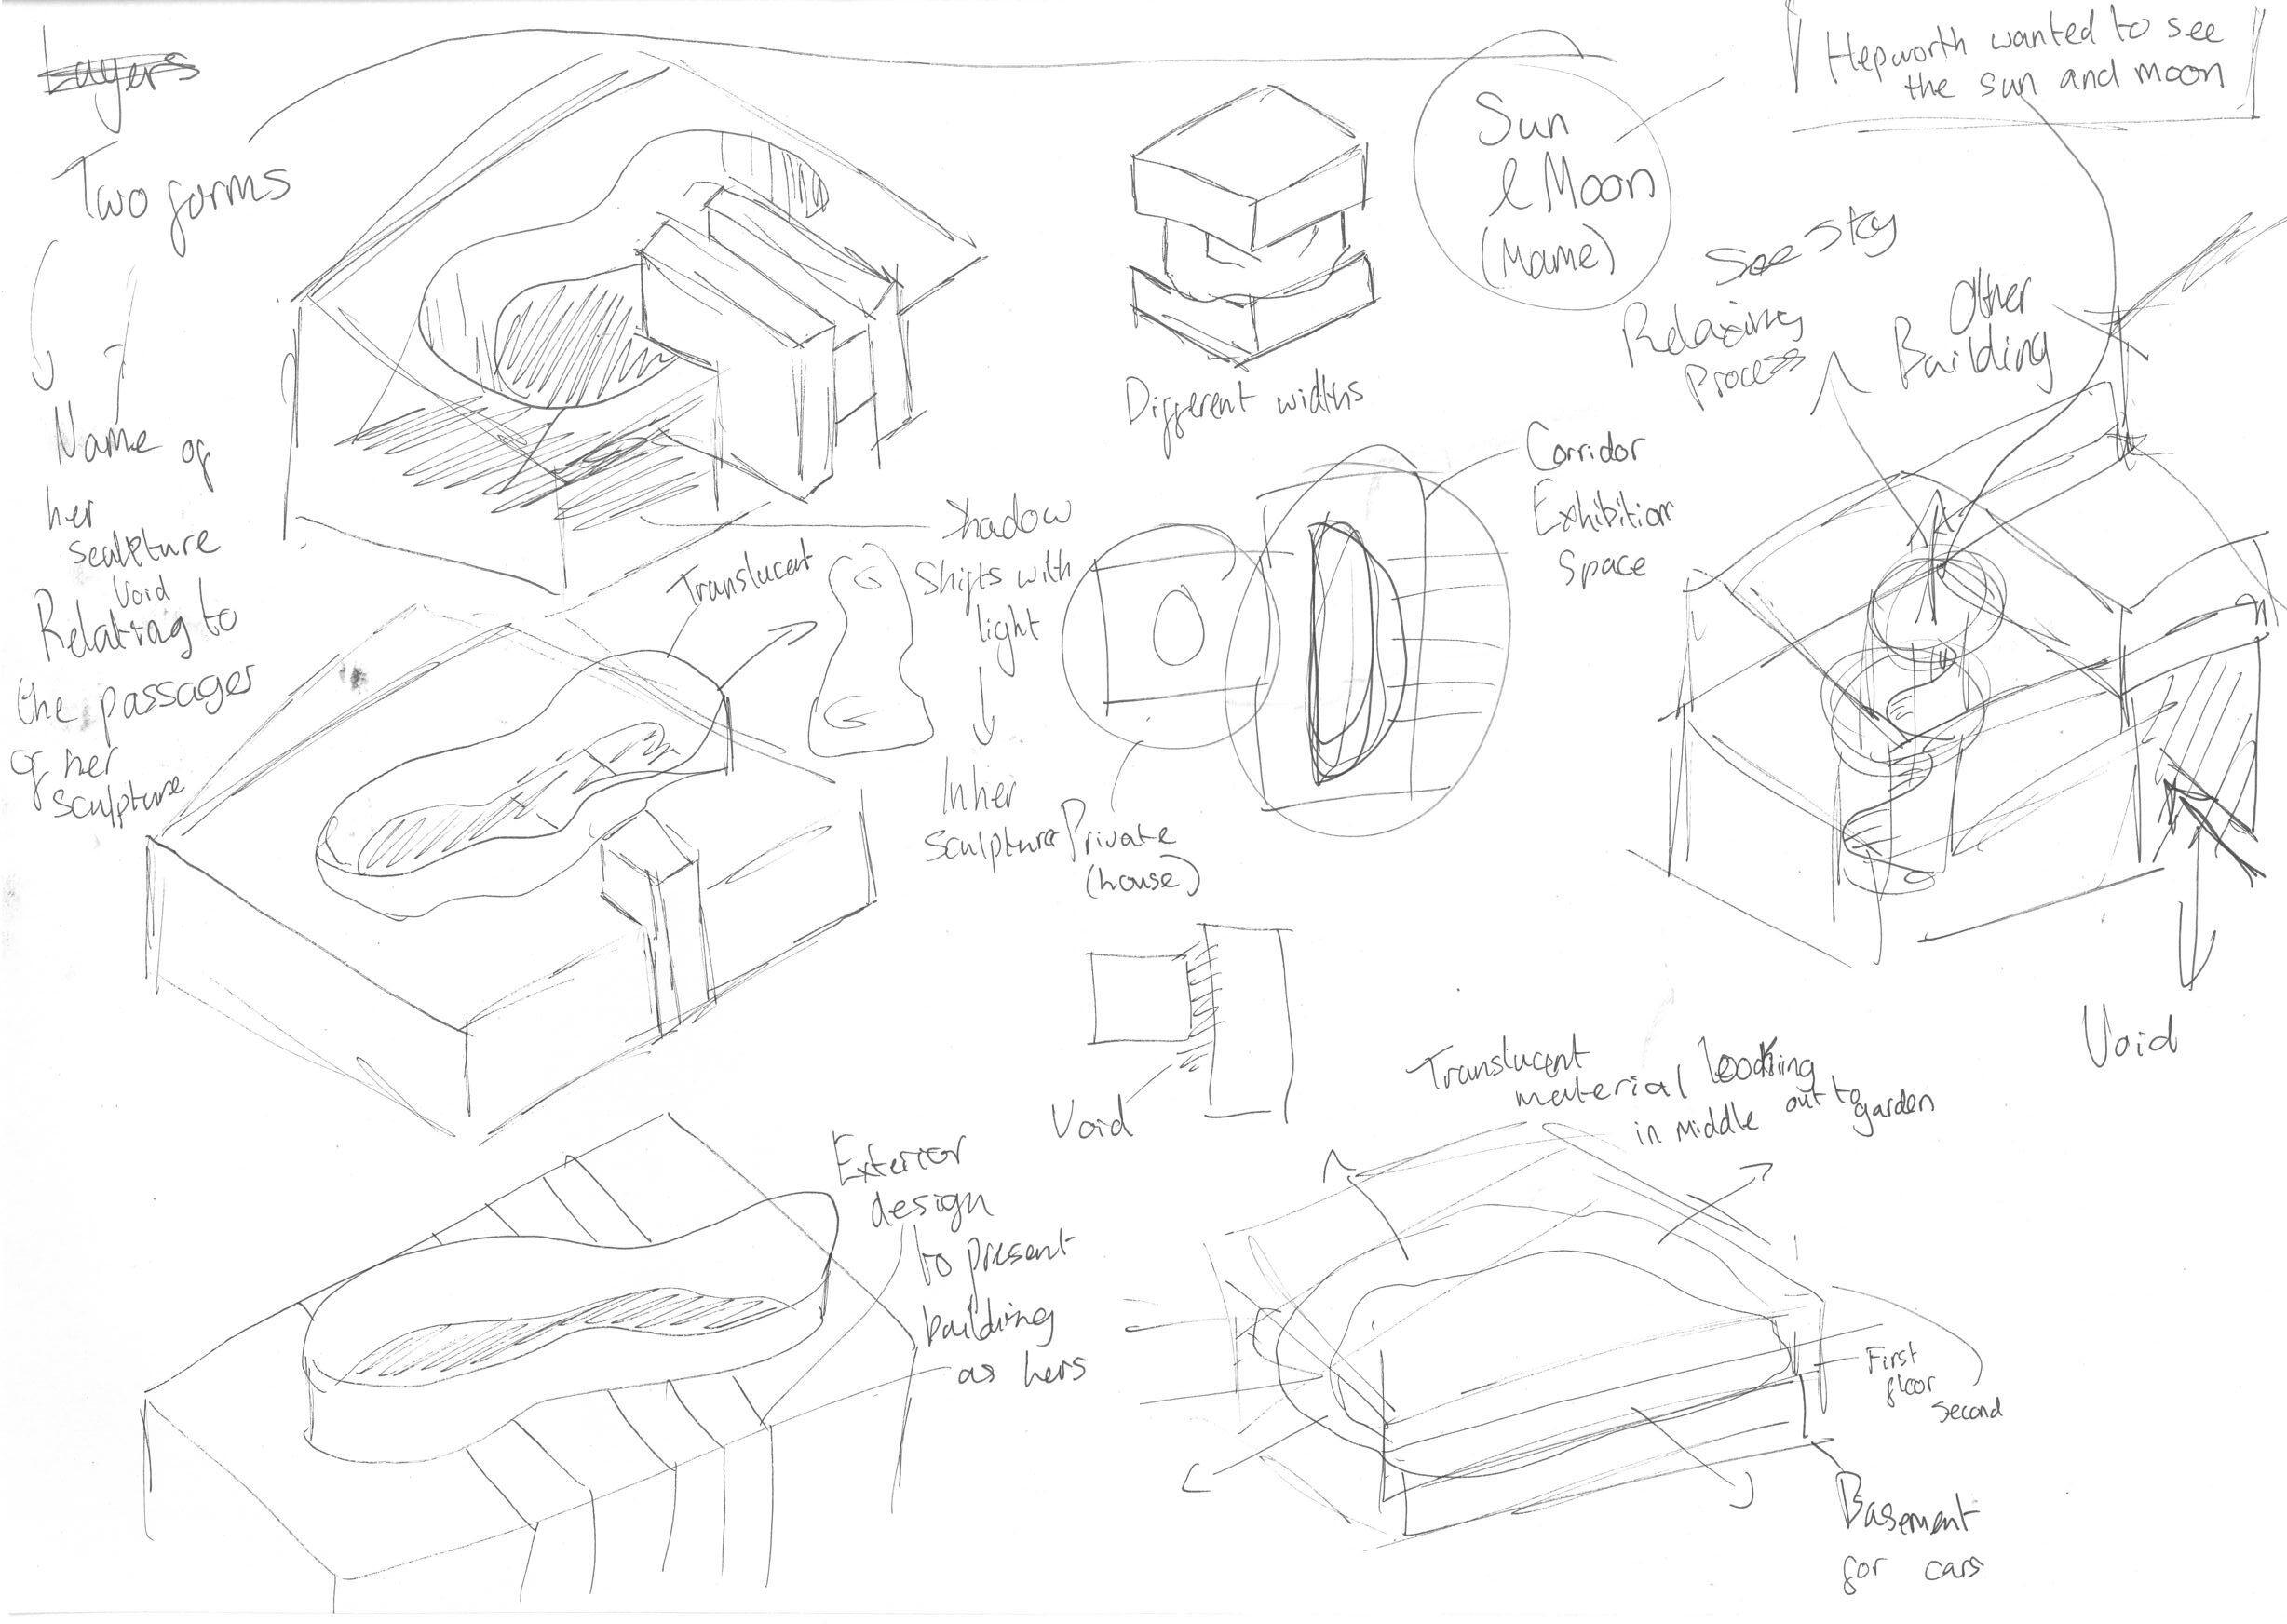 Layers
Two forms
Name of
her
sculpture
Void
Relating to
the passages
of her
sculpture
Translucent
Shadow
Shifts with
light
In her
sculpture
Different widths
Sun
& Moon
(Name)
Hepworth wanted to see
the sun and moon
See Sky
Relaxing
Process
Other
Building
Corridor
Exhibition
Space
Private
(house)
Void
Void
Exterior
design
to present
building
as hers
Translucent
material looking
in middle out to garden
First
floor
Second
Basement
for cars